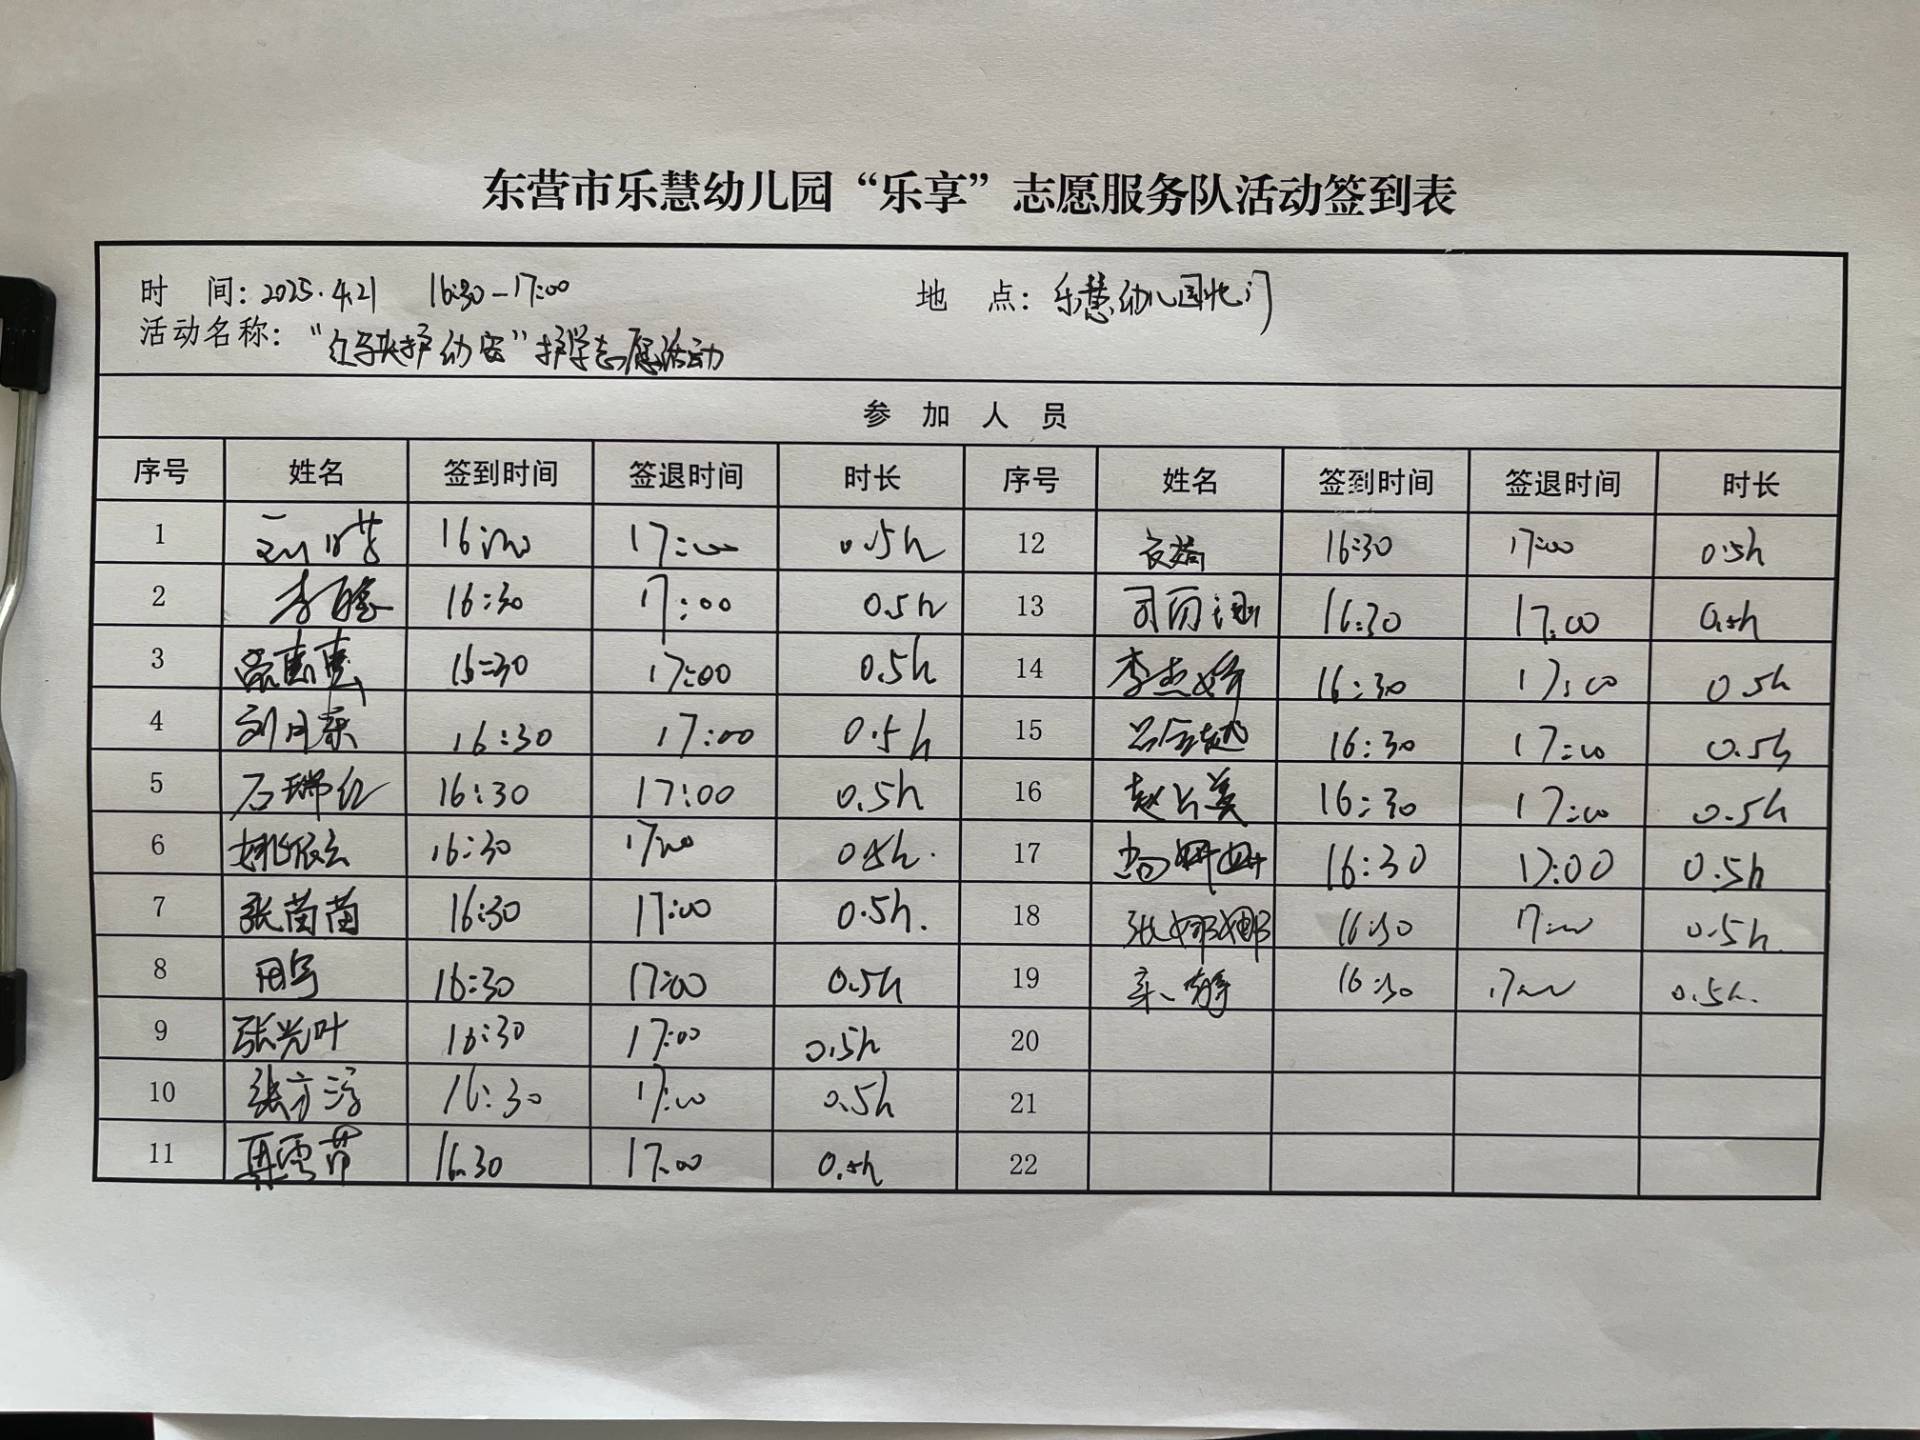 东营市乐慧幼儿园“乐享”志愿服务队活动签到表
时 间：2025.4.21 16:30-17:00 地 点：乐慧幼儿园北门
活动名称：“红 护幼安”护学志愿活动
参 加 人 员
序号 姓名 签到时间 签退时间 时长 序号 姓名 签到时间 签退时间 时长
1 16:30 17:00 0.5h 12 16:30 17:00 0.5h
2 李 16:30 17:00 0.5h 13 16:30 17:00 0.5h
3 16:30 17:00 0.5h 14 李杰 16:30 17:00 0.5h
4 刘月 16:30 17:00 0.5h 15 16:30 17:00 0.5h
5 石瑞红 16:30 17:00 0.5h 16 赵 美 16:30 17:00 0.5h
6 姚依云 16:30 17:00 0.5h. 17 尚姗姗 16:30 17:00 0.5h
7 张茵茵 16:30 17:00 0.5h. 18 张娜娜 16:30 17:00 0.5h.
8 16:30 17:00 0.5h 19 16:30 17:00 0.5h.
9 张光叶 16:30 17:00 0.5h 20
10 张 16:30 17:00 0.5h 21
11 聂雪 16.30 17.00 0.5h 22